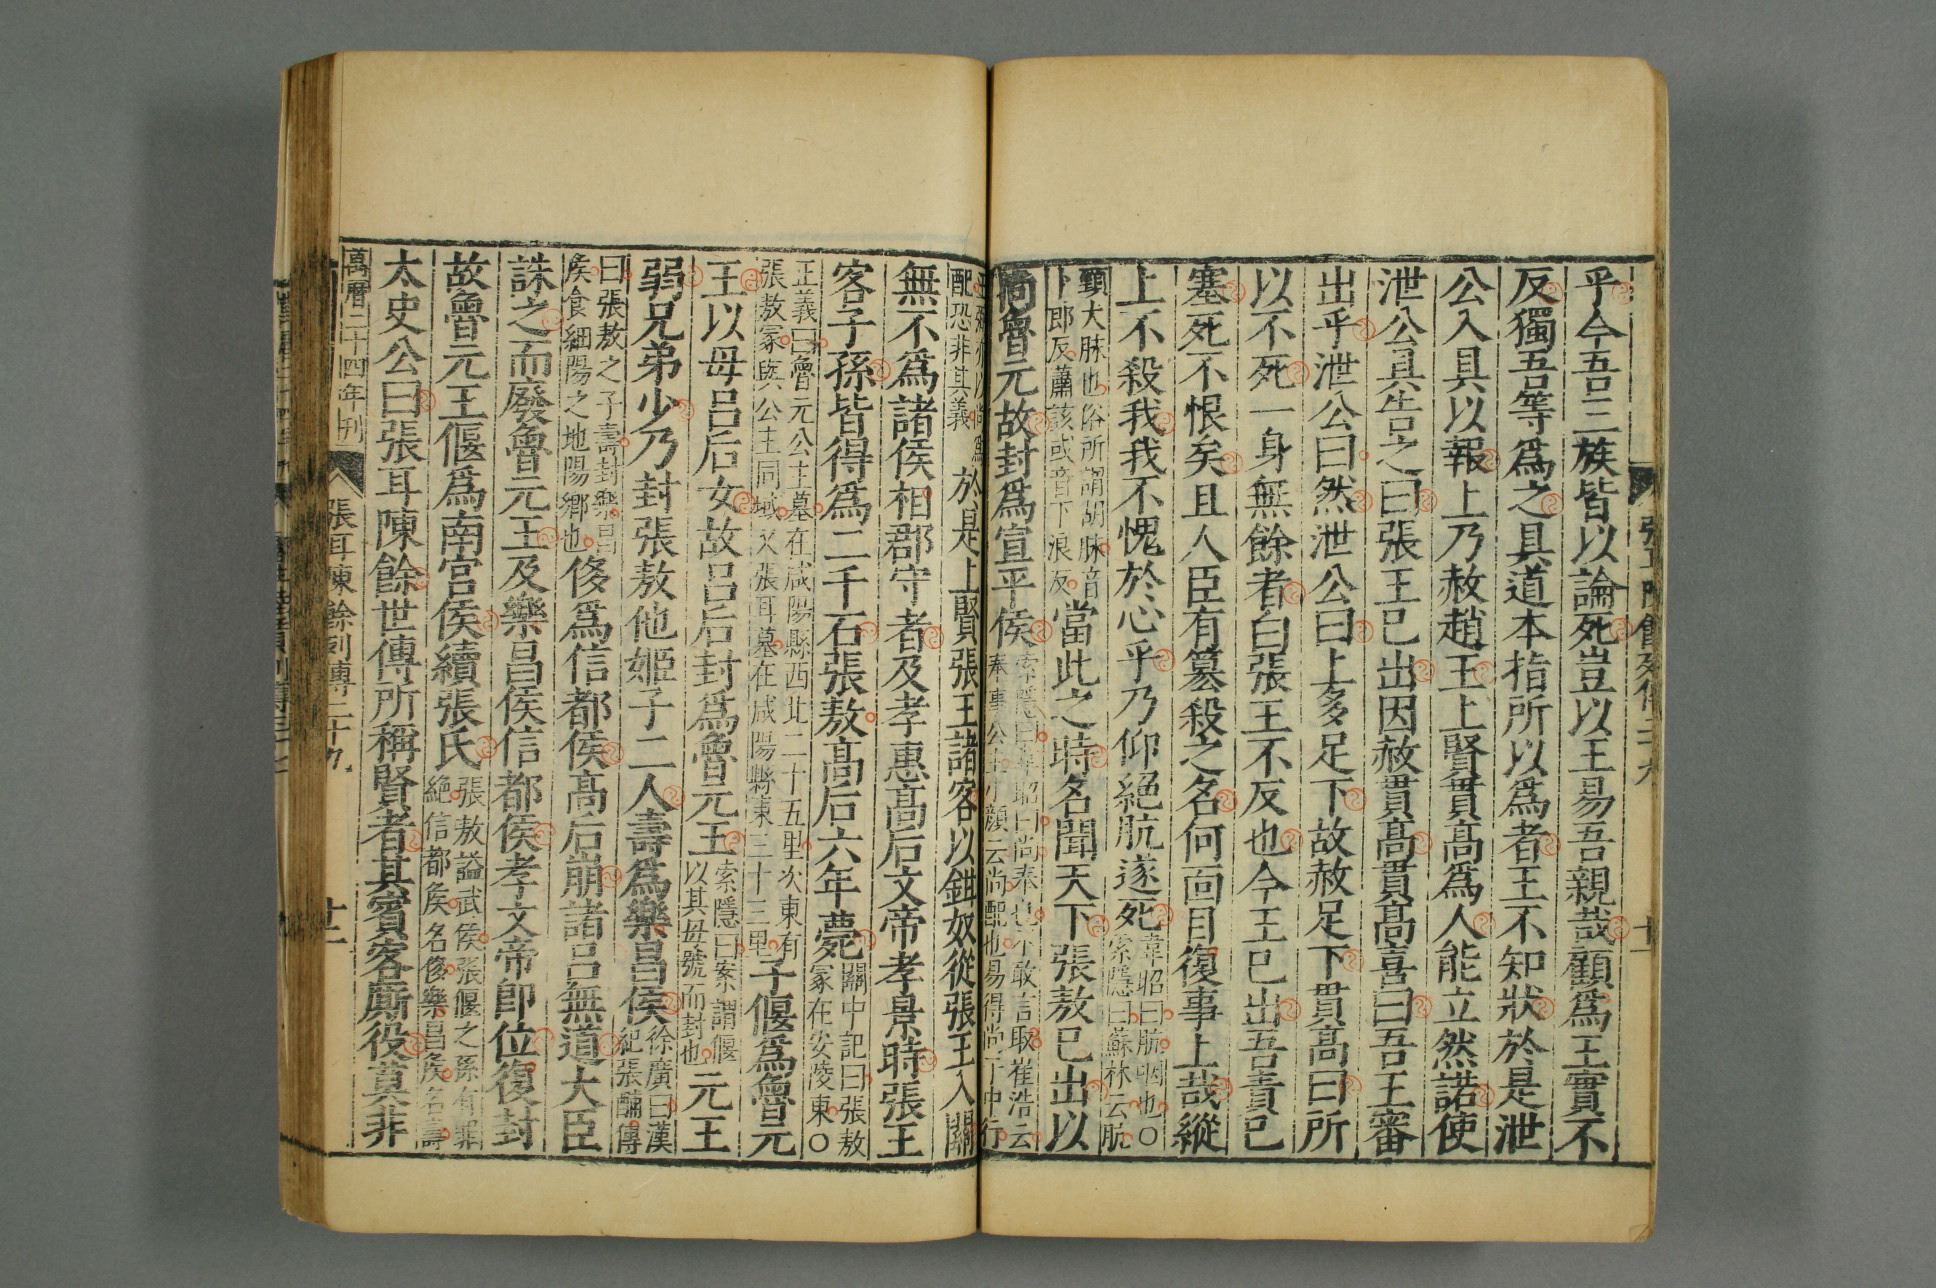 乎今吾三族皆以論死豈以王易吾親哉顧爲王實不
反獨吾等爲之具道本指所以爲者王不知狀於是泄
公入具以報上乃赦趙王上賢貫高爲人能立然諾使
泄公具告之曰張王已出因赦貫高貫高喜曰吾王審
出乎泄公曰然泄公曰上多足下故赦足下貫高曰所
以不死一身無餘者白張王不反也今王已出吾責已
塞死不恨矣且人臣有篡殺之名何面目復事上哉縱
上不殺我我不愧於心乎乃仰絕肮遂死韋昭曰肮咽也○
索隱曰蘇林云肮
頸大脉也俗所謂胡脉音
下郎反蕭該或音下浪反當此之時名聞天下張敖已出以
尚魯元故封爲宣平侯索隱曰韋昭曰尚奉也不敢言取崔浩云
奉事公主小顏云尚配也易得尚于中行
配恐非其義於是上賢張王諸客以鉗奴從張王入關
無不爲諸侯相郡守者及孝惠高后文帝孝景時張王
客子孫皆得爲二千石張敖高后六年薨關中記曰張敖
冢在安陵東○
正義曰魯元公主墓在咸陽縣西北二十五里次東有
張敖冢與公主同域又張耳墓在咸陽縣東三十三里子偃爲魯元
王以母呂后女故呂后封爲魯元王索隱曰案謂偃
以其母號而封也元王
弱兄弟少乃封張敖他姬子二人壽爲樂昌侯徐廣曰漢
紀張酺傳
曰張敖之子壽封樂昌
侯食細陽之地陽鄉也侈爲信都侯高后崩諸呂無道大臣
誅之而廢魯元王及樂昌侯信都侯孝文帝卽位復封
故魯元王偃爲南宮侯續張氏張敖謚武侯張偃之孫有罪
絕信都侯名侈樂昌侯名壽
太史公曰張耳陳餘世傳所稱賢者其賓客廝役莫非
萬曆二十四年刊
張耳陳餘列傳二十九
十二